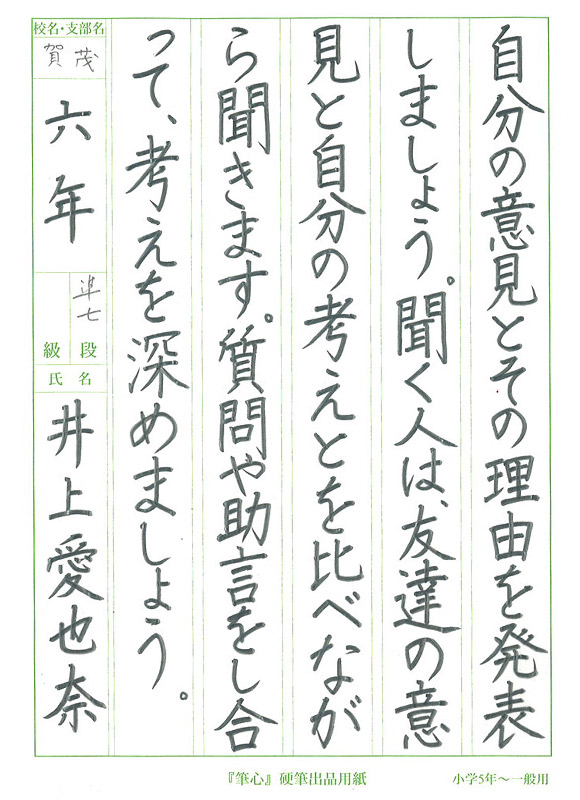 自分の意見とその理由を発表
しましょう。聞く人は、友達の意
見と自分の考えとを比べなが
ら聞きます。質問や助言をし合
って、考えを深めましょう。
校名・支部名
賀茂
六年
準七
級段
氏名
井上愛也奈
『筆心』硬筆出品用紙
小学5年〜一般用